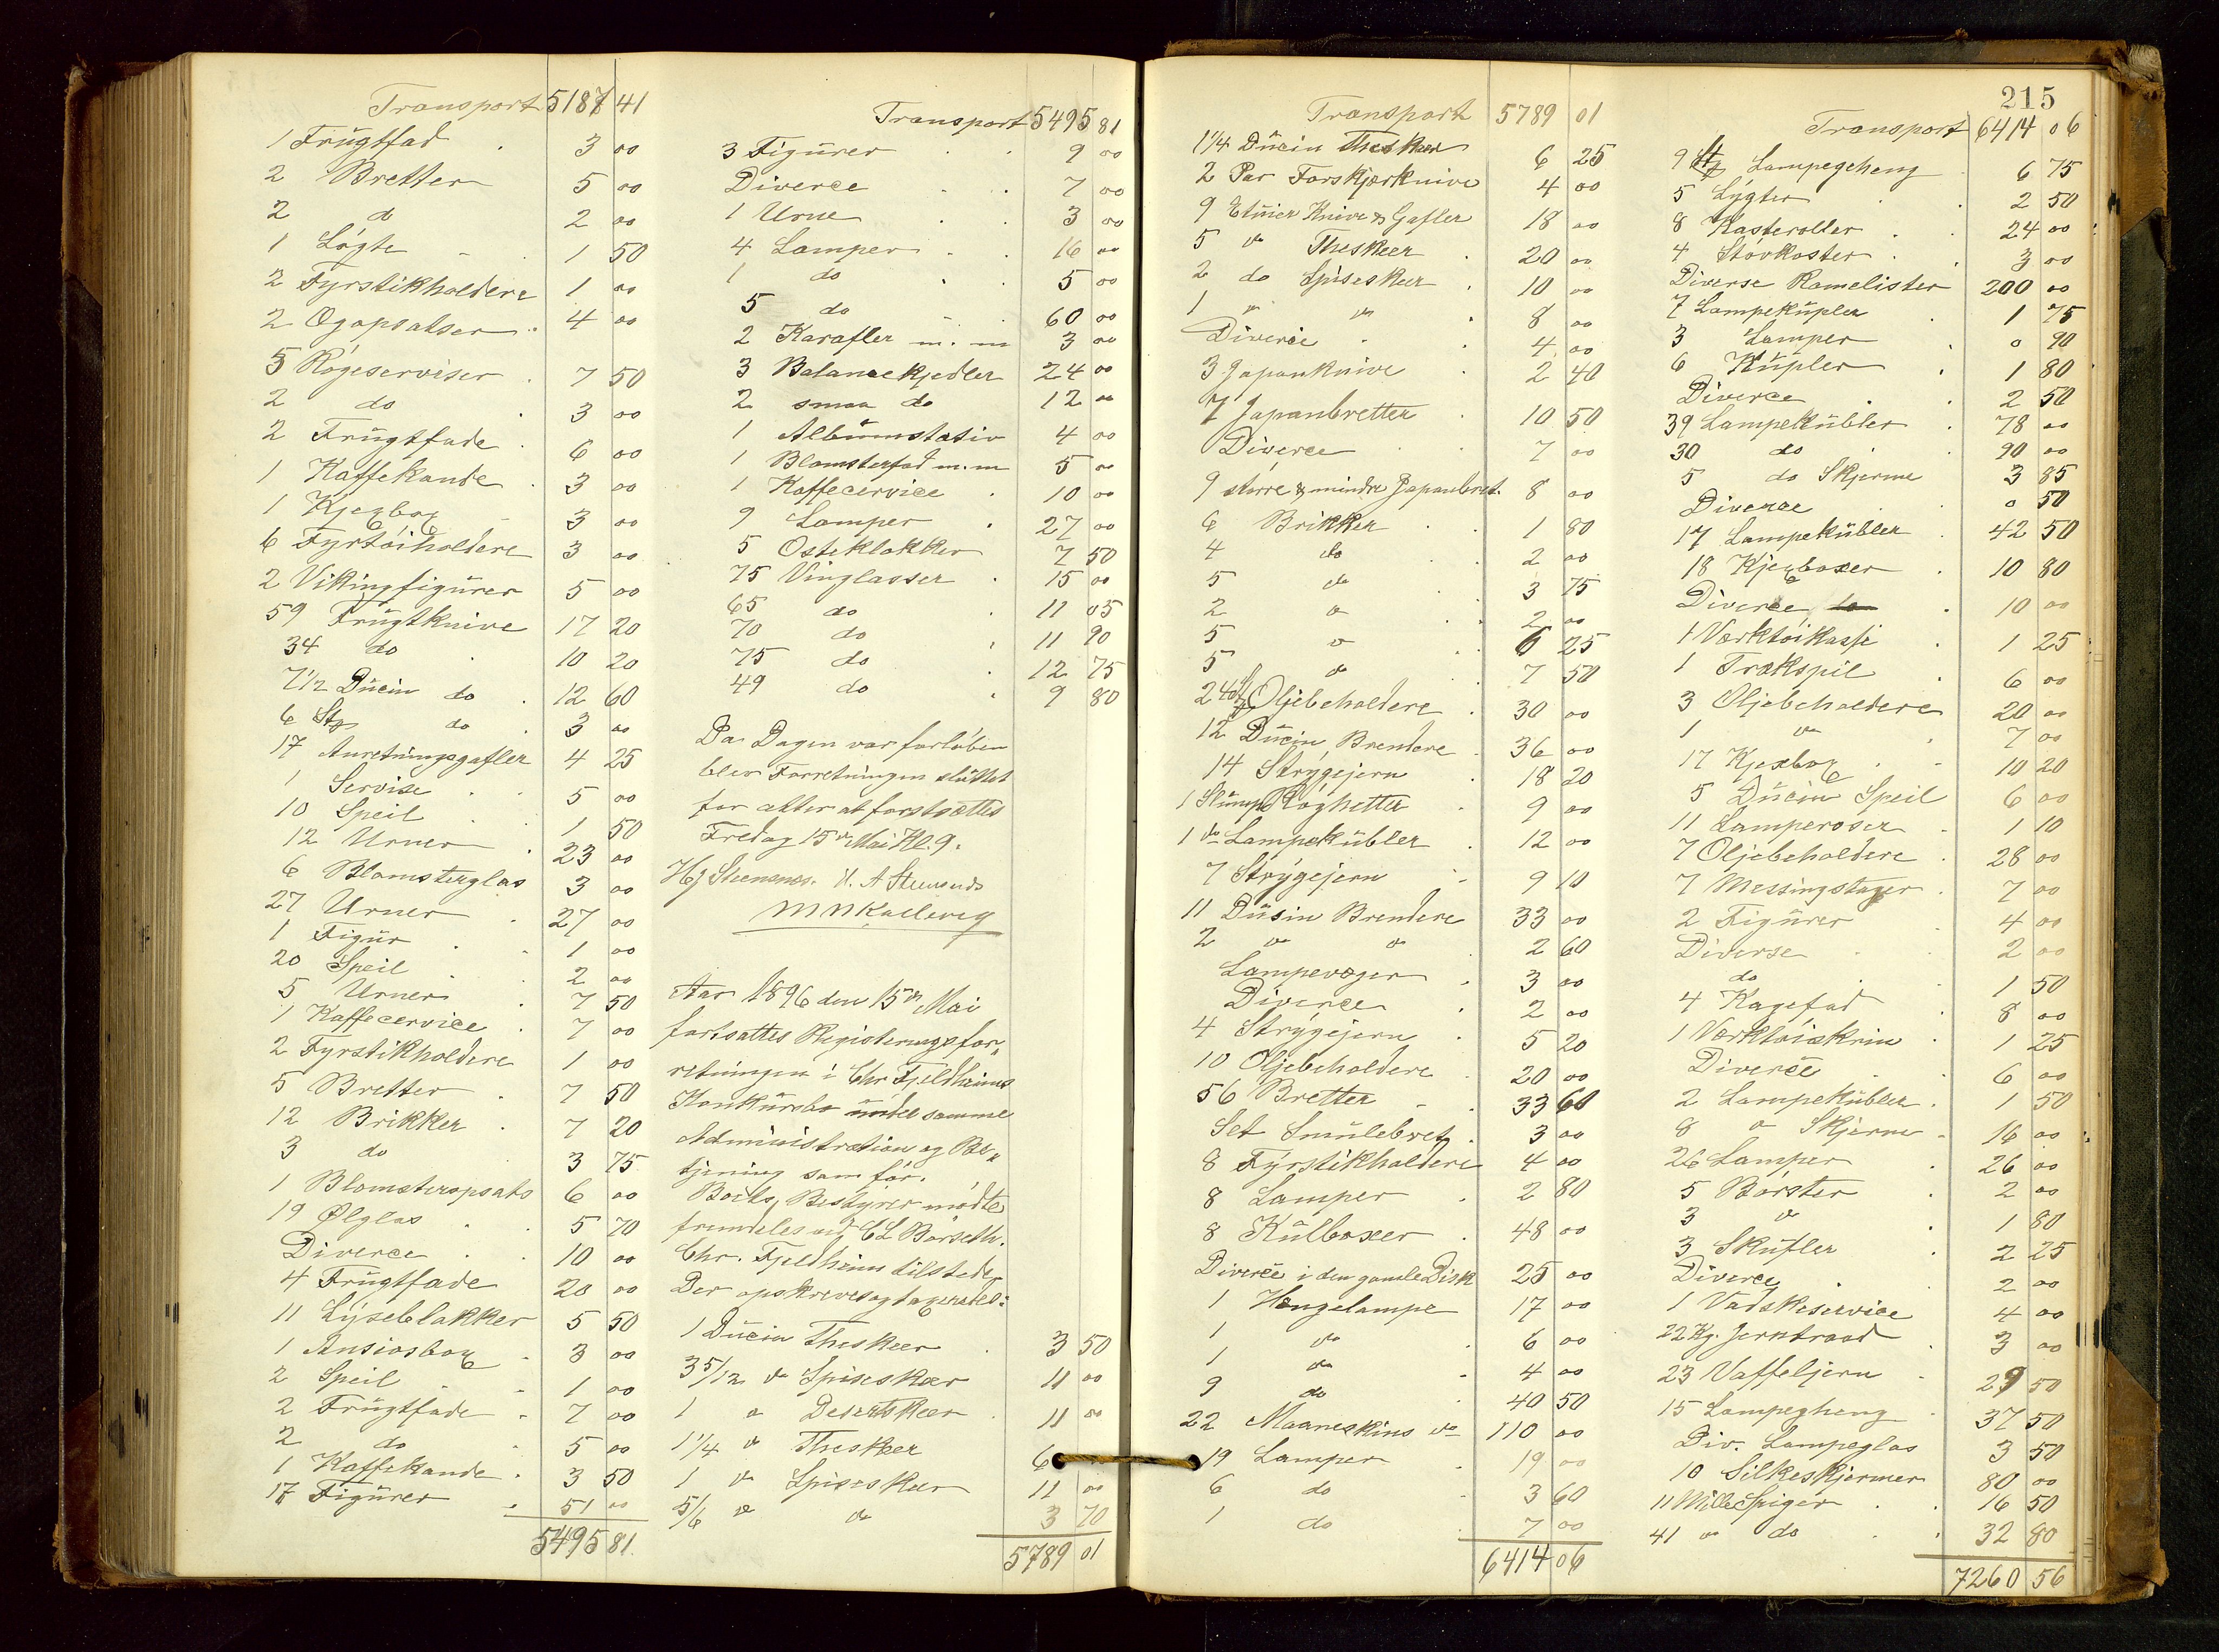 Transport 5187 41
1 Frügtfad . 3 00
2 Bretter 5 00
2 do 2 00
1 Lögte 1 50
2 Fyrstikholdere 1 00
2 Ogopsatser 4 00
5 Rögeserviser . 7 50
2 do . 3 00
2 Frügtfade . 6 00
1 Kaffekande . 3 00
1 Kjexbox 3 00
6 Fyrtöiholdere 3 00
2 Vikingfigürer 5 00
59 Frügtknive 17 20
34 do . 10 20
7 1/2 Dücin do . 12 60
6 Stk do . 3 00
17 Anretningsgafler 4 25
1 Servise . . 5 00
10 Speil . . 1 50
12 Urner . 23 00
6 Blomsterglas 3 00
27 Urner . 27 00
1 Figür . . 1 00
20 Speil . . 2 00
5 Urner . 7 50
1 Kaffecervice . 7 00
2 Fyrstikholdere 1 00
5 Bretter . 7 50
12 Brikker . 7 20
3 do 3 75
1 Blomsteropsats 6 00
19 Ølglas . . 5 70
Diverce . . 10 00
4 Frügtfade 20 00
11 Lyseblakker 5 50
1 Ansiosbox . 3 00
2 Speil . . 1 00
2 Frügtfade . 7 00
2 do . 5 00
1 Kaffekande . 3 50
17 Figürer . 51 00
5495 81
Transport 5495 81
3 Figürer . . 9 00
Diverce . . 7 00
1 Urne . . 3 00
4 Lamper . . 16 00
1 do . . 5 00
5 do . . 60 00
2 Karafler m. m 3 00
3 Balancekjedler 24 00
2 smaa do 12 00
1 Albümstativ 4 00
1 Blomsterfad m. m 5 00
1 Kaffecervice . 10 00
9 Lamper . 27 00
5 Osteklokker 7 50
75 Vinglasser . 15 00
65 do . 11 05
70 do . 11 90
75 do . 12 75
49 do . 9 80
Da Dagen var forløben
blev Forretningen slüttet
for atter at fortsættes
Fredag 15de Mai Kl. 9.
Aar 1896 den 15de Mai
fortsattes Registeringsfor„
retningen i Chr Fjeldheims
Konkürsbo ünder samme
Administration og Be„
tjening som för.
Boets Bestyrer mödte
fremdeles ved C L Börseth.
Chr. Fjeldheim tilstede.
Der opskreves og taxeredes:
1 Dücin Theskeer . 3 50
3 5/12 do Spiseskeer 11 00
1 do Desertskeer . 11 00
1 1/4 do Theskeer 6
1 do Spiseskeer 11 00
5/6 do do 3 70
5789 01
Transport 5789 01
1 1/4 Dücin Theskeer 6 25
2 Par Forskjærknive 4 00
9 Etüier Knive & Gafler 18 00
5 do Theskeer . 20 00
2 do Spiseskeer . 10 00
1 do do . 8 00
Diverce . . 4 00
3 Japanknive . 2 40
7 Japanbretter . 10 50
Diverce . . 7 00
9 större & mindre Japanbret. 8 00
6 Brikker . . 1 80
4 do . . 2 00
5 do . . 3 75
2 do . . 2 00
5 do . . 6 25
5 do . . 7 50
24 Stk Oljebeholdere . 30 00
12 Dücin Brendere . 36 00
14 Strygejern . 18 20
1 Slümp Röghetter . 9 00
1 do Lampekübler . 12 00
7 Strygejern . 9 10
11 Düsin Brendere 33 00
2 do do 2 60
Lampevæger . 3 00
Diverce . 2 00
4 Strygejern . 5 20
10 Oljebeholdere . 20 00
56 Bretter . . 33 60
Set Smülebret . 3 00
8 Fyrstikholdere 4 00
8 Lamper . 2 80
8 Külboxer . 48 00
Diverce i den gamle Disk 25 00
1 Hængelampe 17 00
1 do . 6 00
1 do . 4 00
9 do 40 50
22 Maaneskins do 110 00
19 Lamper . 19 00
6 do . 3 60
1 do . 7 00
6414 06
215
Transport 6414 06
9 Stk Lampegeheng 6 75
5 Lygter . . 2 50
8 Kasteroller . 24 00
4 Stövkoster . . 3 00
Diverse Ramelister 200 00
7 Lampeküpler 1 75
3 Lamper . 0 90
6 Küpler . 1 80
Diverce . . 2 50
39 Lampekübler . 78 00
30 do . 90 00
5 do Skjerme 3 85
Diverce . 0 50
17 Lampekübler . 42 50
18 Kjexboxer . 10 80
Diverce . 10 00
1 Værktöikasse . 1 25
1 Trækspil . 6 00
3 Oljebeholdere 20 00
1 do . 7 00
17 Kjexbox . . 10 20
5 Dücin Speil 6 00
11 Lamperoser . 1 10
7 Oljebeholdere . 28 00
7 Messingstager . 7 00
2 Figürer . 4 00
Diverse . . 2 00
do . . 1 50
4 Kagefad . 8 00
1 Værktöiskrin . 1 25
Diverce . . 6 00
2 Lampekübler . 1 50
8 do Skjerme . 16 00
26 Lamper . 26 00
5 Börster . 2 00
3 do . 1 80
3 Sküfler . 2 25
Diverce . . 2 00
1 Vadskeservice 4 00
22 Kg. Jerntraad 3 00
23 Vaffeljern . 29 50
15 Lampegheng . 37 50
Div. Lampeglas 3 50
10 Silkeskjermer 80 00
11 Mille Spiger . . 16 50
41 do do . . 32 80
7260 56